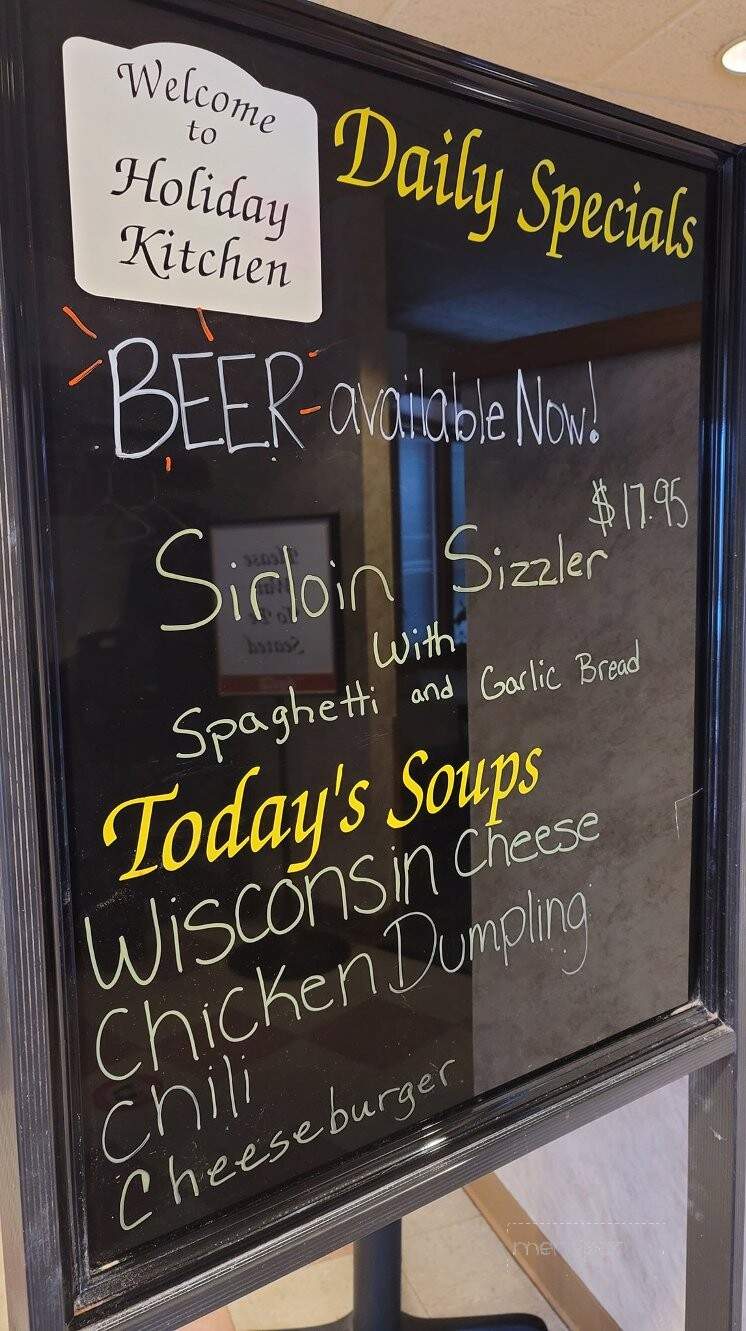 Welcome
to
Holiday
Kitchen
Daily Specials
BEER-available Now!
$17.95
Sirloin Sizzler
With
Spaghetti and Garlic Bread
Today's Soups
Wisconsin Cheese
Chicken Dumpling
Chili
Cheeseburger
Please
To Be
Seated